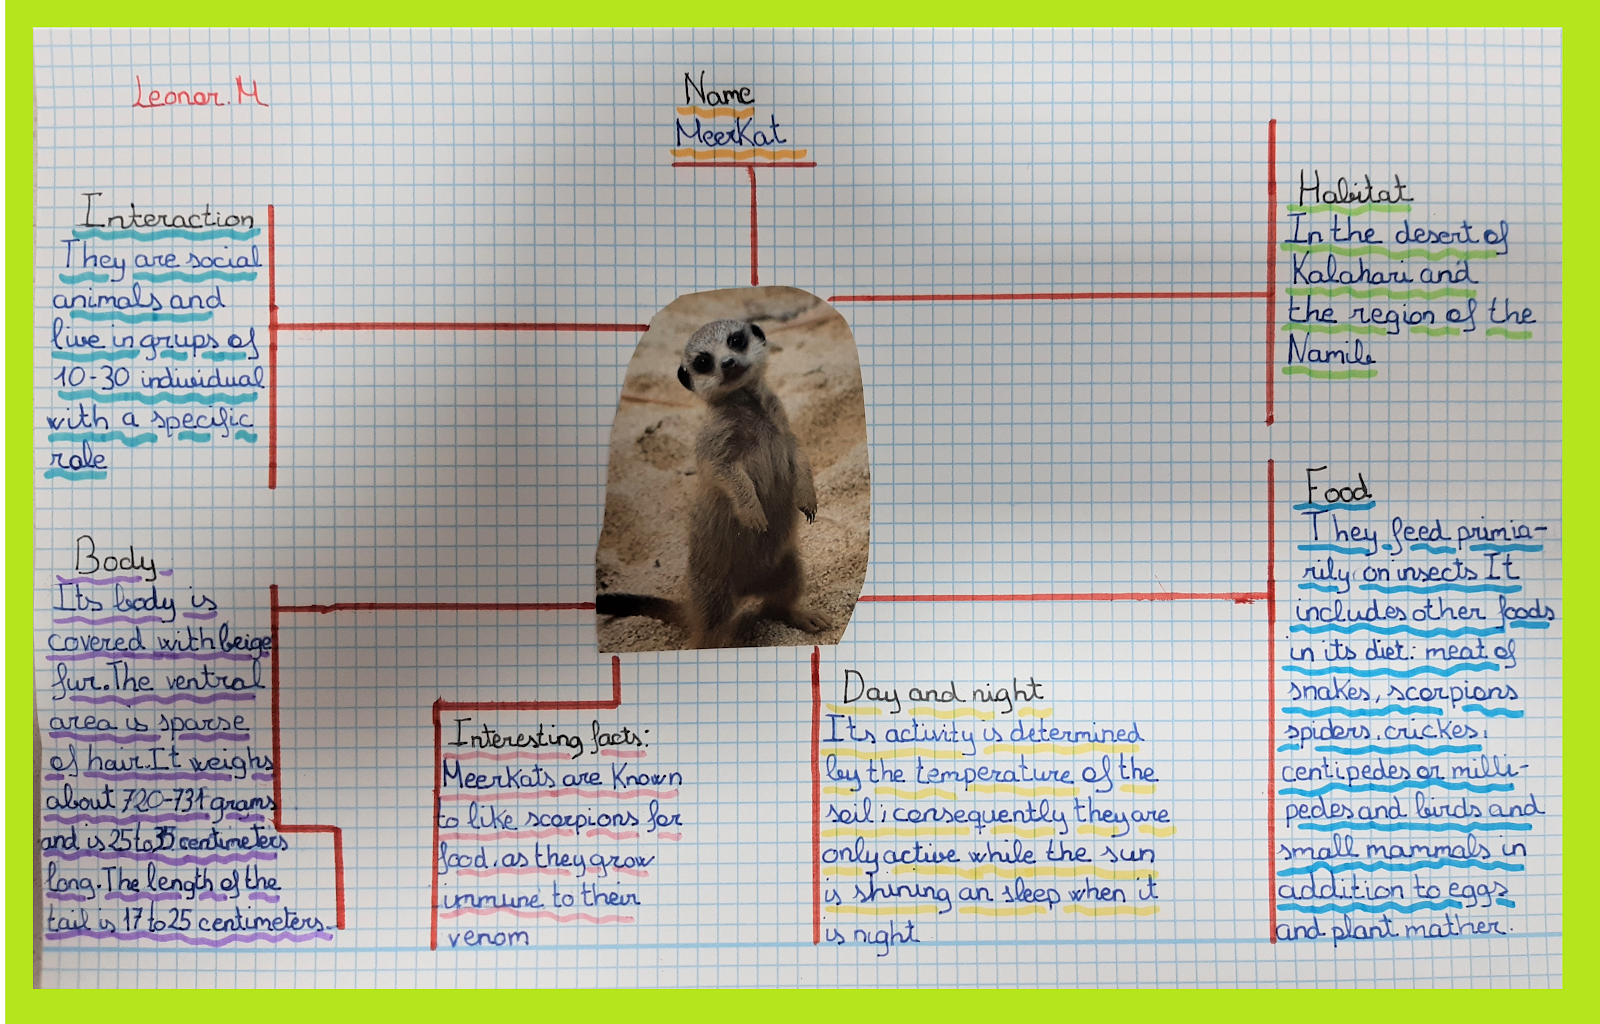 Leonor.M
Name
MeerKat
Interaction
They are social
animals and
live in grups of
10-30 individual
with a specific
role
Habitat
In the desert of
Kalahari and
the region of the
Namib
Body
Its body is
covered with beige
fur. The ventral
area is sparse
of hair. It weighs
about 720-731 grams
and is 25 to 35 centimeters
long. The length of the
tail is 17 to 25 centimeters.
Interesting facts:
MeerKats are Known
to like scorpions for
food, as they grow
immune to their
venom
Day and night
Its activity is determined
by the temperature of the
soil; consequently they are
only active while the sun
is shining an sleep when it
is night
Food
They feed primia-
rily on insects It
includes other foods
in its diet: meat of
snakes, scorpions
spiders, crickes,
centipedes or milli-
pedes and birds and
small mammals in
addition to eggs
and plant mather.